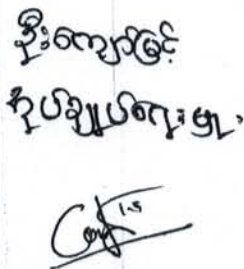 ဦးကျော်မြင့်
အုပ်ချုပ်ရေးမှူး